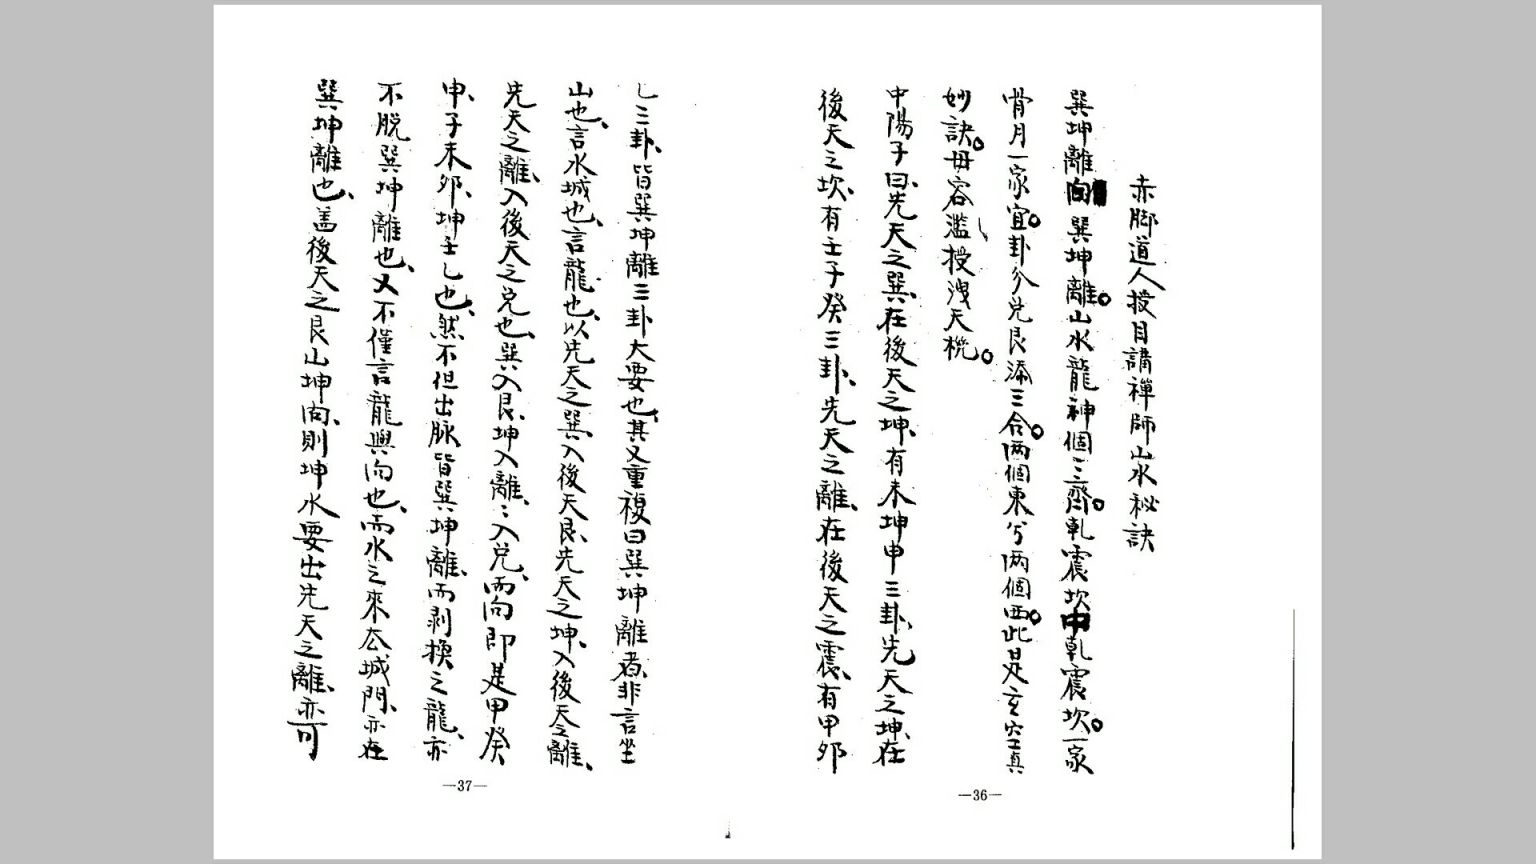 赤脚道人授目講禪師山水秘訣
巽坤離向巽坤離。山水龍神個三齊。乹震坎中乹震坎。一家
骨月一家宜。卦分兑艮添三合。两個東兮两個西。此是玄空真
妙訣。毋容濫授洩天機。
中陽子曰、先天之巽、在後天之坤、有未坤申三卦、先天之坤、在
後天之坎、有壬子癸三卦、先天之離、在後天之震、有甲卯
乚三卦、皆巽坤離三卦大要也、其又重複曰巽坤離者、非言坐
山也、言水城也、言龍也、以先天之巽、入後天艮、先天之坤、入後天之離、
先天之離、入後天之兑也、巽入艮、坤入離、離入兑、而向即是甲癸
申、子未卯、坤壬乚也、然不但出脉皆巽坤離、而剥換之龍、亦
不脱巽坤離也、又不僅言龍與向也、而水之來去城門、亦在
巽坤離也、盖後天之艮山坤向、則坤水要出先天之離、亦可
—36—
—37—